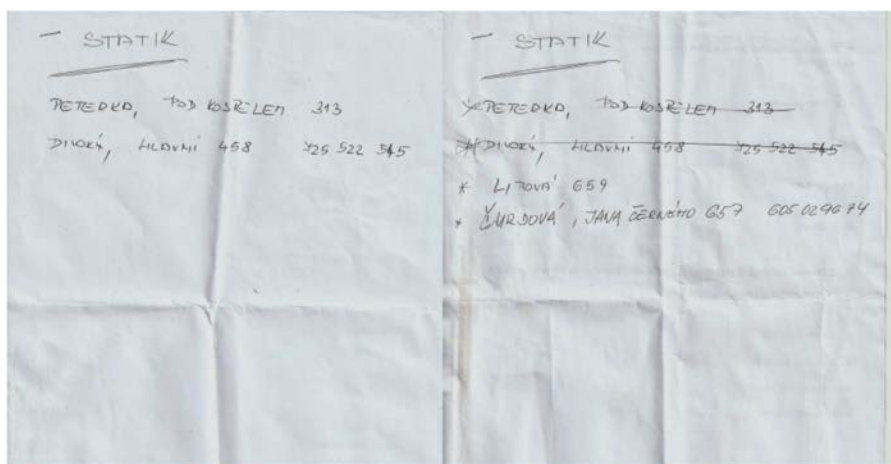 - STATIK
PETEDKA, POD KOSŘELEM 313
DIVOKÝ, HLAVNÍ 458 725 522 545
- STATIK
PETEDKA, POD KOSŘELEM 313
DIVOKÝ, HLAVNÍ 458 725 522 545
* LITOVÁ 659
* ČURDOVÁ, JANA ČERNÉHO 657 605 029674